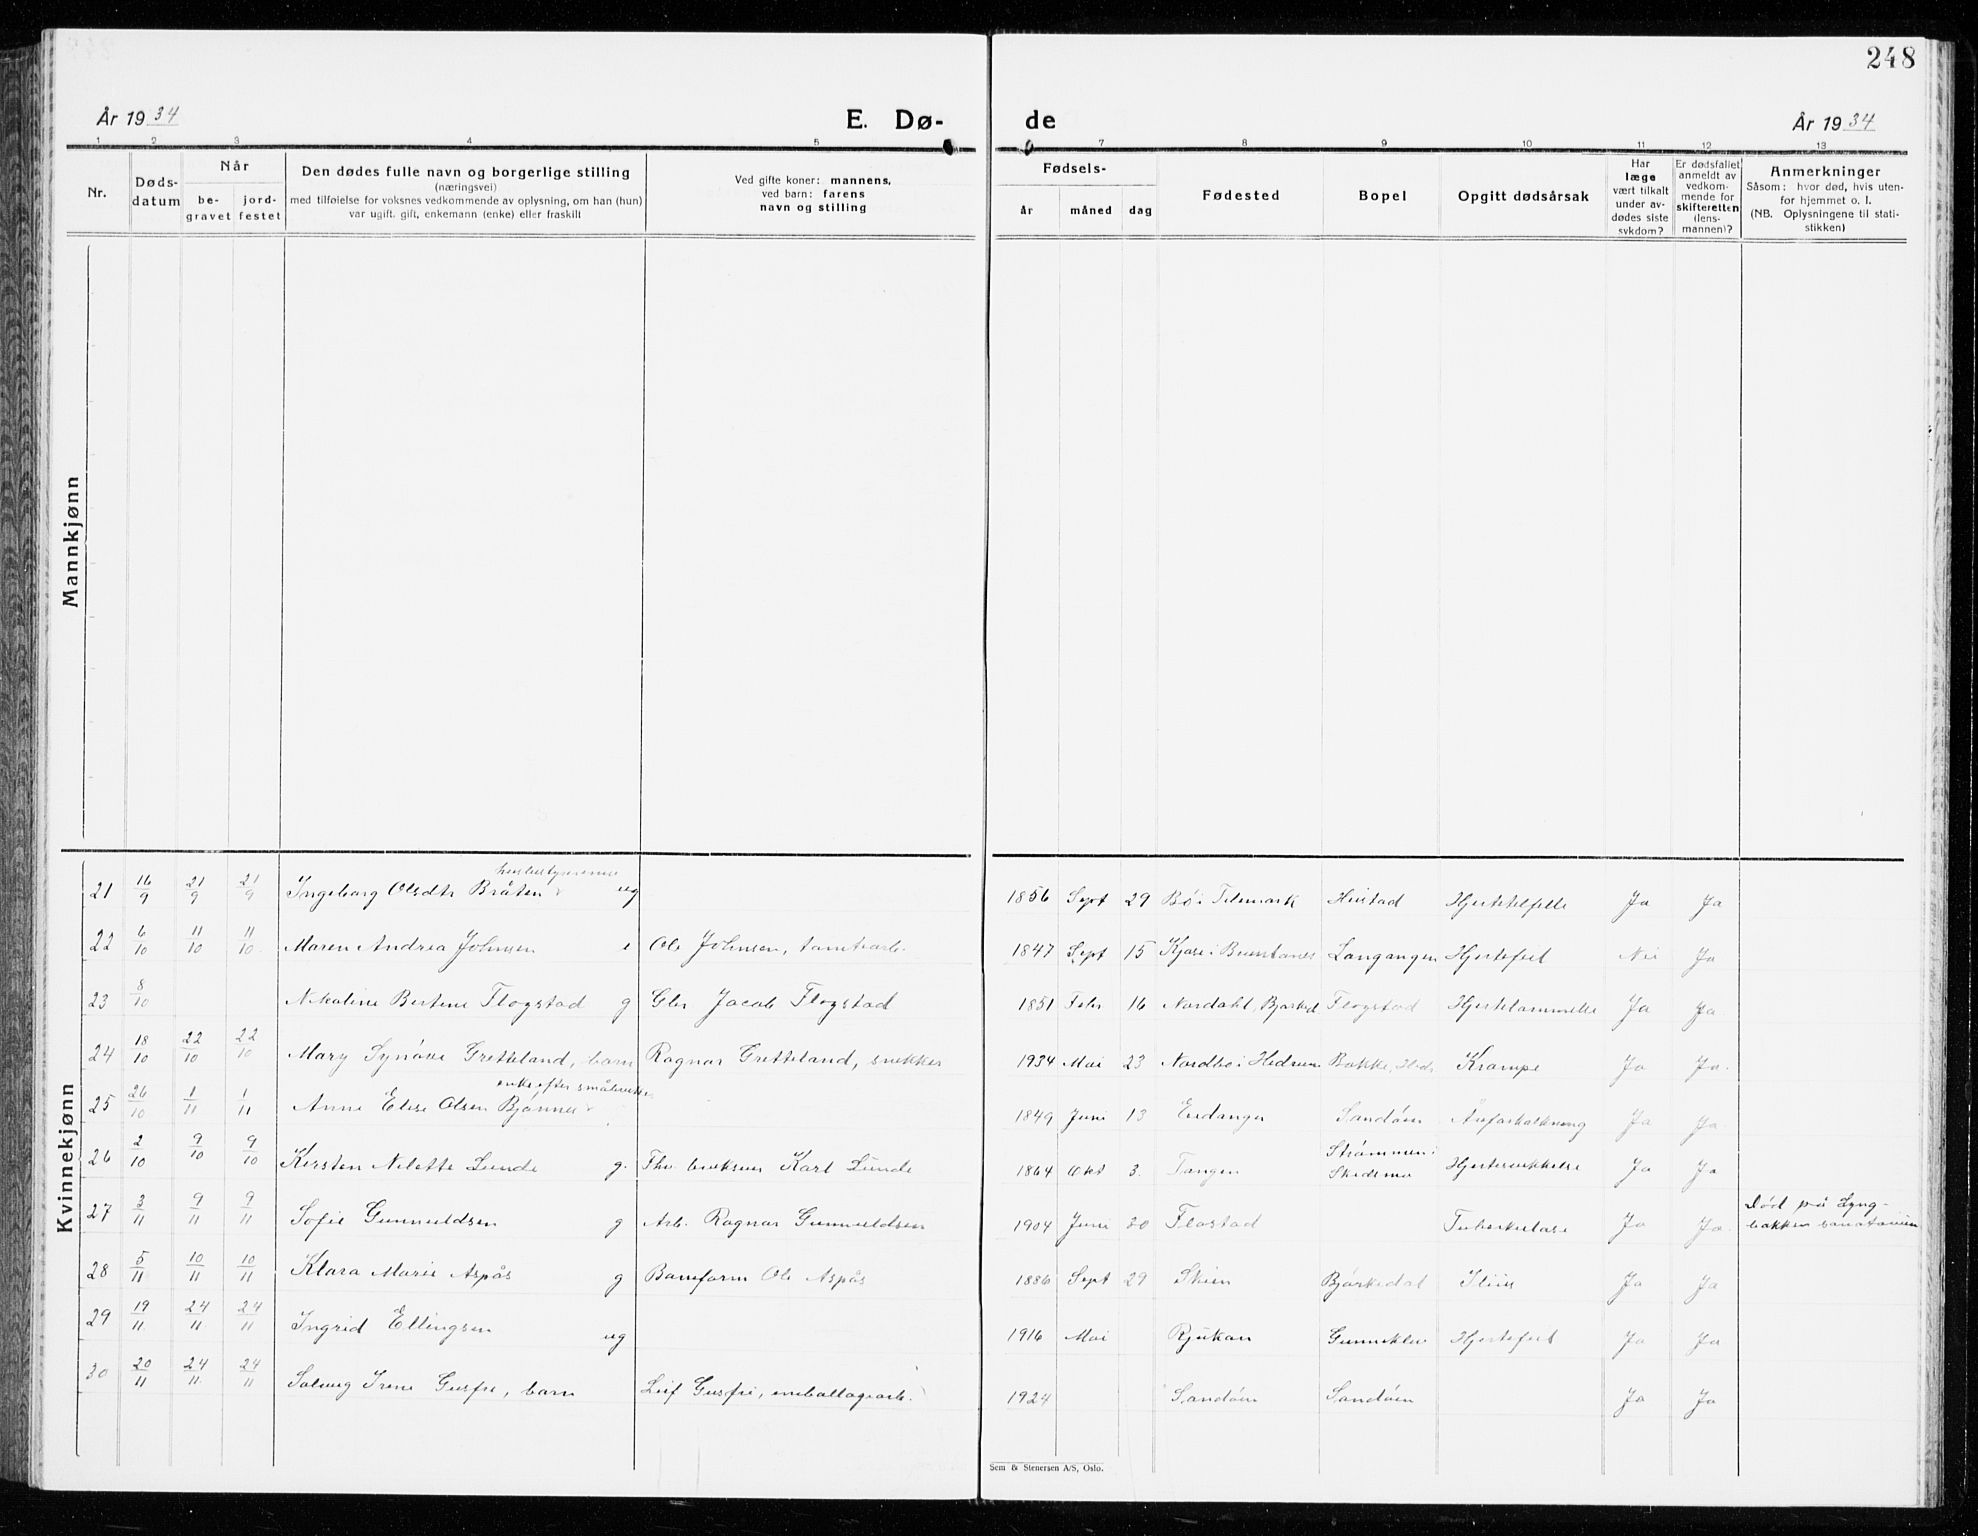 248
År 1934 E. Dø- de År 1934
1 2 3 4 5 7 8 9 10 11 12 13
Nr.
Døds-
datum
Når
be-
gravet
jord-
festet
Den dødes fulle navn og borgerlige stilling
(næringsvei)
med tilføielse for voksnes vedkommende av oplysning, om han (hun)
var ugift, gift, enkemann (enke) eller fraskilt
Ved gifte koner: mannens,
ved barn: farens
navn og stilling
Fødsels-
år måned dag
Fødested
Bopel
Opgitt dødsårsak
Har
læge
vært tilkalt
under av-
dødes siste
sykdom?
Er dødsfallet
anmeldt av
vedkom-
mende for
skifteretten
(lens-
mannen)?
Anmerkninger
Såsom: hvor død, hvis uten-
for hjemmet o. l.
(NB. Oplysningene til stati-
stikken)
Mannkjønn
Kvinnekjønn
21 16/9 21/9 21/9 Ingeborg Olsdtr Bråten ug 1856 Sept 29 Bø i Telemark Ja Ja
22 6/10 11/10 11/10 Maren Andrea Johnsen e Ole Johnsen, tomtearb. 1847 Sept 15 Langangen Hjertefeil Nei Ja
23 8/10 Nikoline Bertine Flogstad g Gbr Jacob Flogstad 1851 Febr 16 Nordahl, Bjørked Flogstad Hjertelammelse Ja Ja
24 18/10 22/10 22/10 Mary Synøve Gretteland, barn Ragnar Gretteland, snekker 1934 Mai 23 Nordbø i Hedrum Bakke, Hedr Krampe Ja Ja
enke efter småbruker
25 26/10 1/11 1/11 Anne Elise Olsen 1849 Juni 13 Eidanger Sandøen Åreforkalkning Ja Ja
26 2/10 9/10 9/10 Kirsten Nilette Lunde g. Fhv. Karl Lunde 1864 Okt 3. Tangen Strømmen i
Skedsmo Hjertesvekkelse Ja Ja
27 3/11 9/11 9/11 Sofie Gunnuldsen g Arb. Ragnar Gunnuldsen 1904 Juni 20 Tuberkulose Ja Ja Død på Lyng-
bakken sanatorium
28 5/11 10/11 10/11 Klara Marie Aspås g Baneform Ole Aspås 1886 Sept 29 Skien Bjørkedal Ja Ja
29 19/11 24/11 24/11 Ingrid Ellingsen ug 1916 Mai Rjukan Gunneklev Hjertefeil Ja Ja
30 20/11 24/11 24/11 Solveig Irene Gusfre, barn Leif Gusfre, emballagearb. 1924 Sandøen Sandøen Ja Ja
Sem & Stenersen A/S, Oslo.